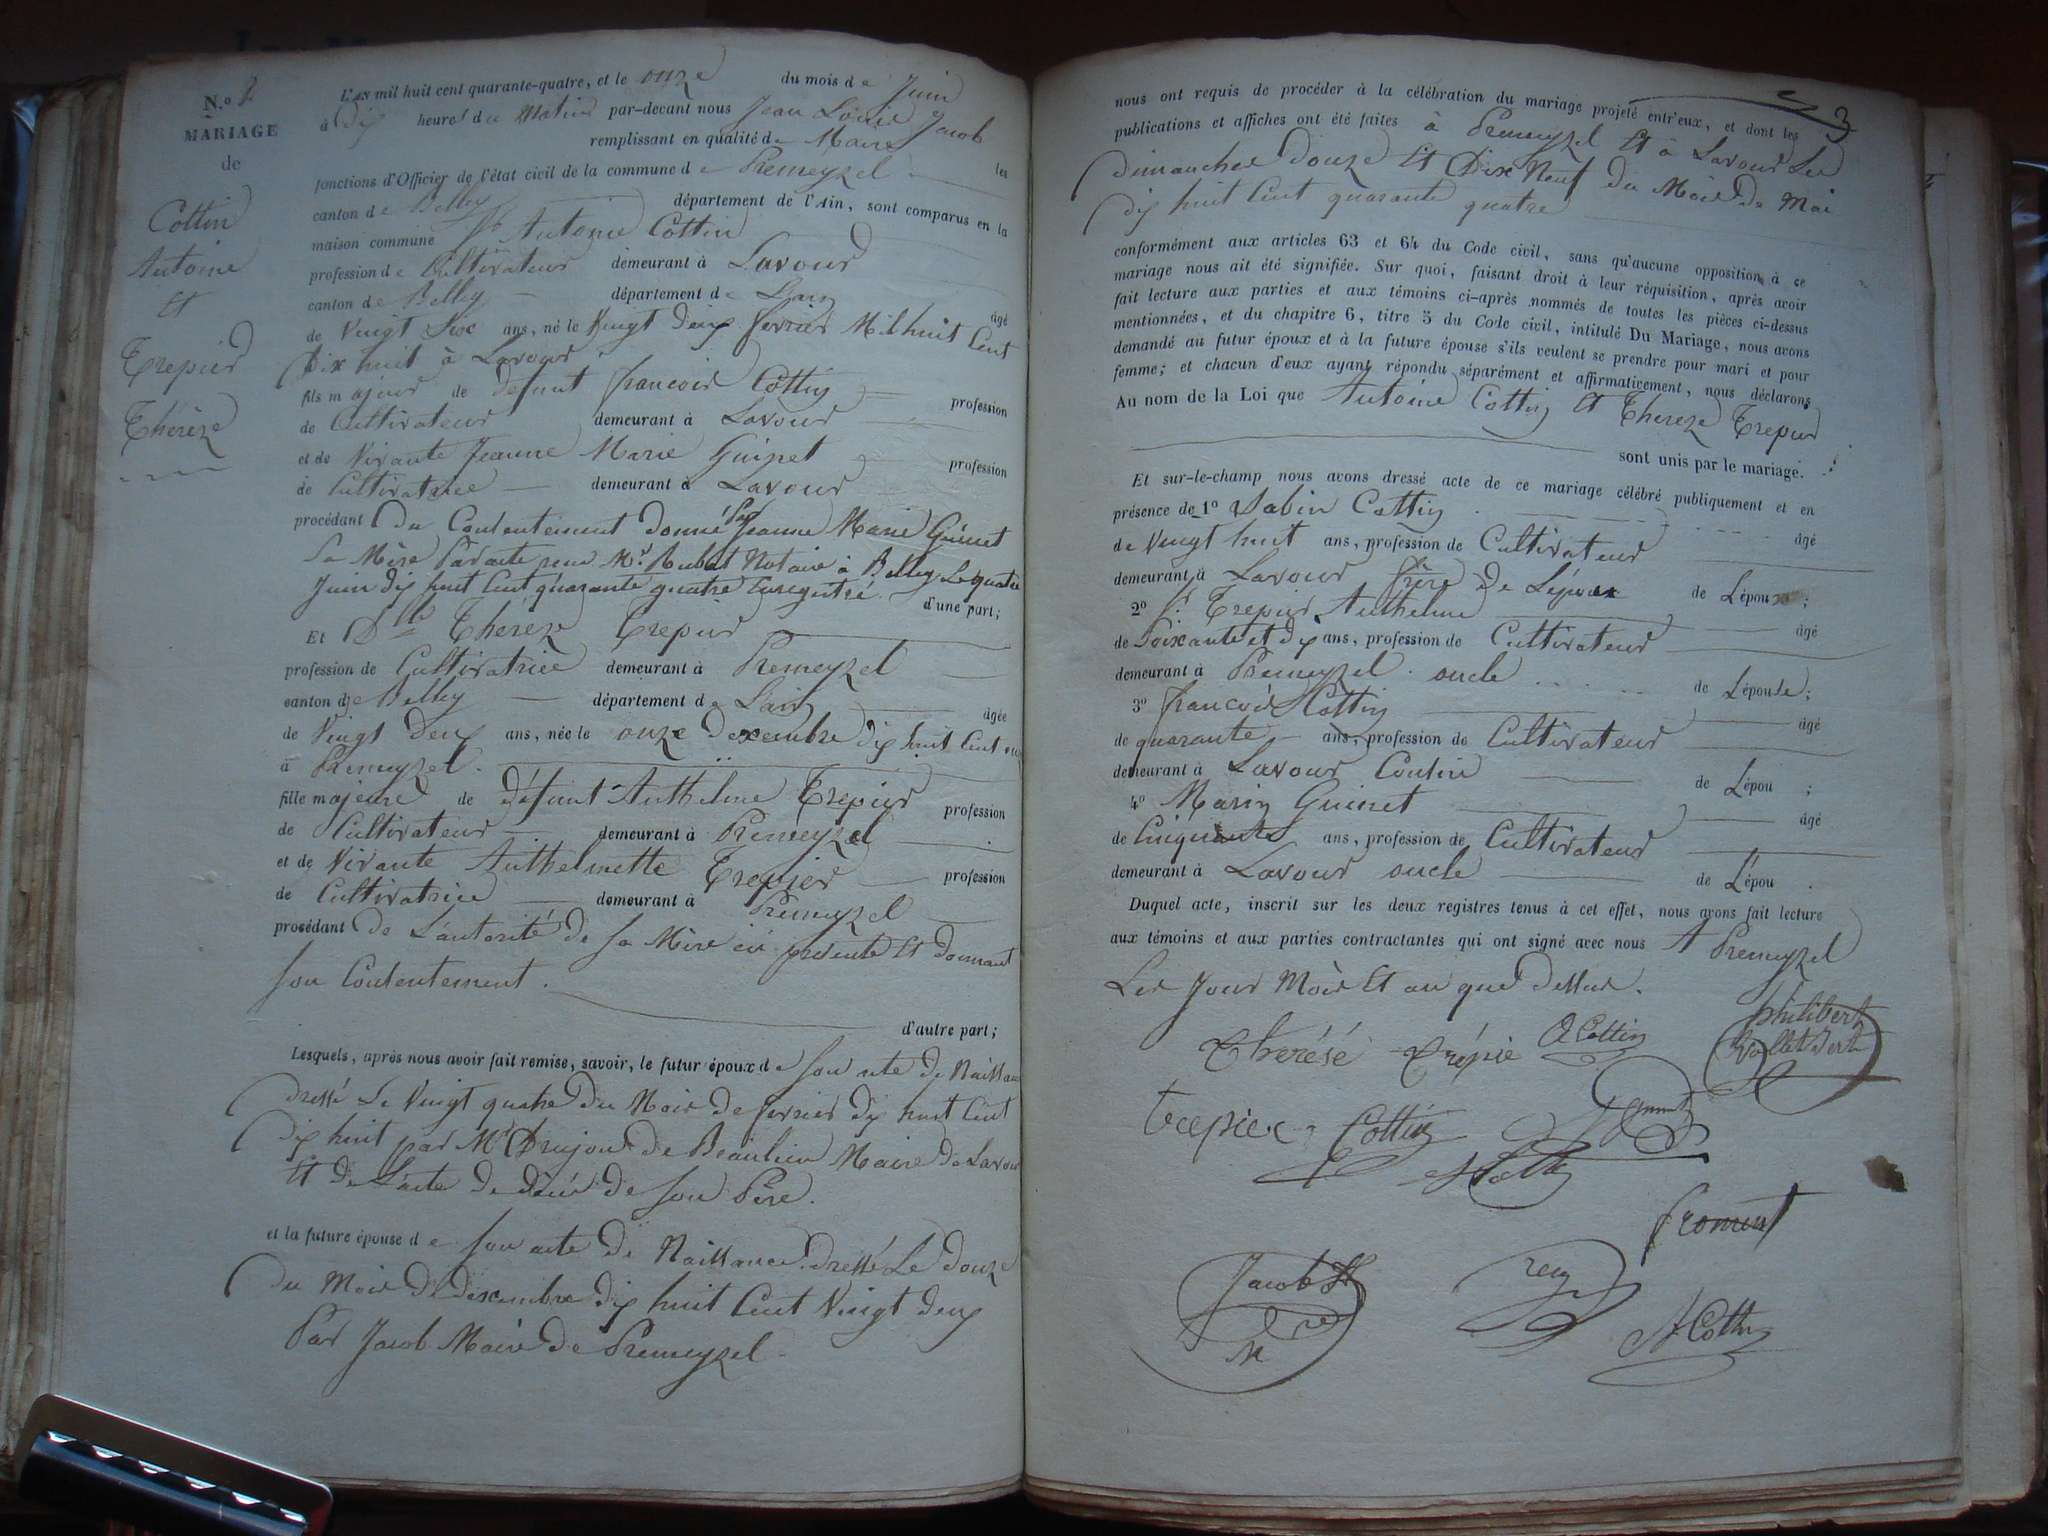 N.º 2
MARIAGE
de
Cottin
Antoine
Et
Trepier
Thérèze
L'AN mil huit cent quarante-quatre, et le onze du mois de Juin
à dix heures du Matin par-devant nous Jean Louis Jacob
remplissant en qualité de Maire les
fonctions d'Officier de l'état civil de la commune de Premeyzel
canton de Belley département de l'Ain, sont comparus en la
maison commune Sr Antoine Cottin
profession de Cultivateur demeurant à Lavour
canton de Belley département de Lain âgé
de Vingt Six ans, né le Vingt deux fevrier Mil huit Cent
Dix huit à Lavour
fils majeur de defunt francois Cottin profession
de Cultivateur demeurant à Lavour
et de Vivante Jeanne Marie Guinet profession
de Cultivatrice demeurant à Lavour
procédant du Contentement donné par Jeanne Marie Guinet
Sa Mère Notaire à Belley Le quatre
Juin dix huit Cent quarante quatre Enregistré d'une part;
Et Dlle Thereze Trepier
profession de Cultivatrice demeurant à Premeyzel
canton de Belley département de Lain âgée
de Vingt deux ans, née le onze dexembre dix huit Cent
à Premeyzel
fille majeure de défunt Anthelme Trepier profession
de Cultivateur demeurant à Premeyzel
et de Vivante Anthelmette Trepier profession
de Cultivatrice demeurant à Premeyzel
procédant de L'autorité de sa Mère ici présente Et donnant
son Contentement.
d'autre part;
Lesquels, après nous avoir fait remise, savoir, le futur époux de son acte de Naissance
dressé Le Vingt quatre du Mois de fevrier dix huit Cent
Dix huit par Mr Drujon de Beaulieu Maire de Lavour
Et de L'acte de décès de son Père.
et la future épouse de son acte de Naissance dressé Le douze
du Mois de dexembre dix huit Cent Vingt deux
Par Jacob Maire de Premeyzel
3
nous ont requis de procéder à la célébration du mariage projeté entr'eux, et dont les
publications et affiches ont été faites à Premeyzel Et à Lavour Les
dimanches douze Et Dix Neuf du Mois de Mai
dix huit Cent quarante quatre
conformément aux articles 63 et 64 du Code civil, sans qu'aucune opposition à ce
mariage nous ait été signifiée. Sur quoi, faisant droit à leur réquisition, après avoir
fait lecture aux parties et aux témoins ci-après nommés de toutes les pièces ci-dessus
mentionnées, et du chapitre 6, titre 5 du Code civil, intitulé Du Mariage, nous avons
demandé au futur époux et à la future épouse s'ils veulent se prendre pour mari et pour
femme; et chacun d'eux ayant répondu séparément et affirmativement, nous déclarons
Au nom de la Loi que Antoine Cottin Et Thereze Trepier
sont unis par le mariage.
Et sur-le-champ nous avons dressé acte de ce mariage célébré publiquement et en
présence de 1º Sabin Cottin âgé
de Vingt huit ans, profession de Cultivateur
demeurant à Lavour frère de L'époux de L'épou ;
2º Sr Trepier Anthelme âgé
de Soixante et dix ans, profession de Cultivateur
demeurant à Premeyzel oncle de L'épouse;
3º francois Cottin âgé
de quarante ans, profession de Cultivateur
demeurant à Lavour Cousin de L'épou ;
4º Marin Guinet âgé
de Cinquante ans, profession de Cultivateur
demeurant à Lavour oncle de L'épou .
Duquel acte, inscrit sur les deux registres tenus à cet effet, nous avons fait lecture
aux témoins et aux parties contractantes qui ont signé avec nous A Premeyzel
Les Jour Mois Et an que dessus.
Thérésé Trépie A Cottin Philibert
trepier Cottin
froment
Jacob
A Cottin